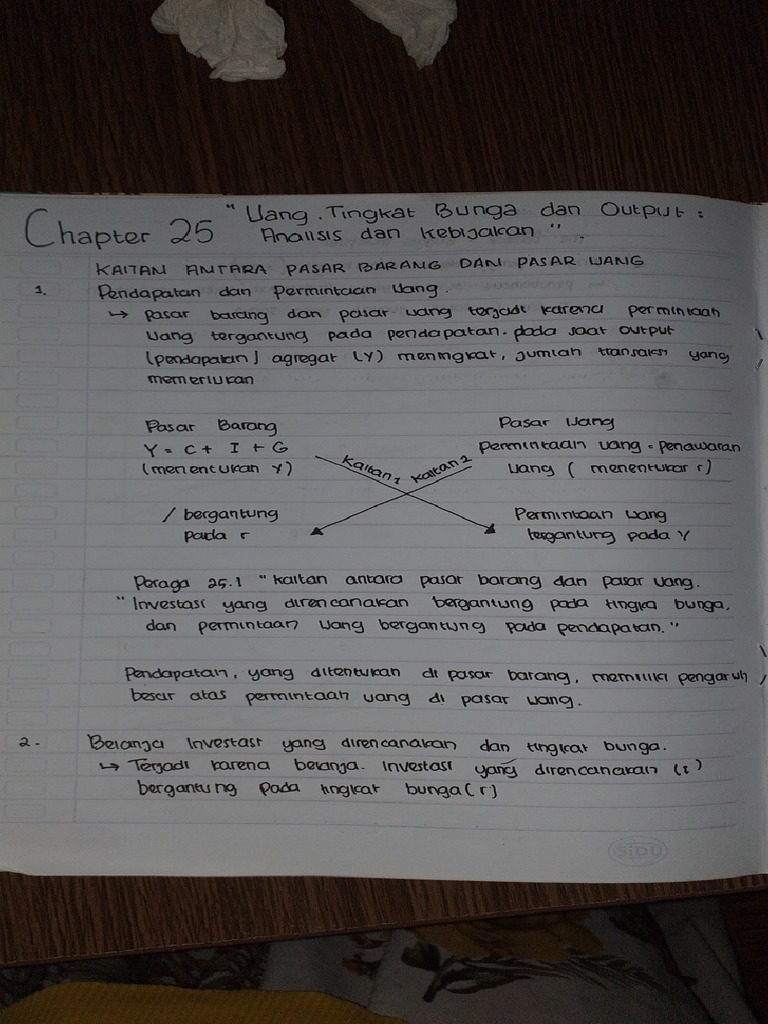 Chapter 25 " Uang. Tingkat Bunga dan Output :
Analisis dan Kebijakan ".
KAITAN ANTARA PASAR BARANG DAN PASAR UANG
1. Pendapatan dan Permintaan Uang.
↳ pasar barang dan pasar uang terjadi karena permintaan
uang tergantung pada pendapatan. pada saat output
(pendapatan) agregat (Y) meningkat, jumlah transaksi yang
memerlukan
Pasar Barang
Y = C + I + G
(menentukan Y)
Kaitan 1
Kaitan 2
Pasar Uang
Permintaan uang = penawaran
uang ( menentukan r)
/ bergantung
pada r
Permintaan uang
tergantung pada Y
Peraga 25.1 " kaitan antara pasar barang dan pasar uang.
" Investasi yang direncanakan bergantung pada tingka bunga,
dan permintaan uang bergantung pada pendapatan."
Pendapatan, yang ditentukan di pasar barang, memiliki pengaruh
besar atas permintaan uang di pasar uang.
2. Belanja Investasi yang direncanakan dan tingkat bunga.
↳ Terjadi karena belanja. Investasi yang direncanakan (I)
bergantung pada tingkat bunga (r)
SIDU